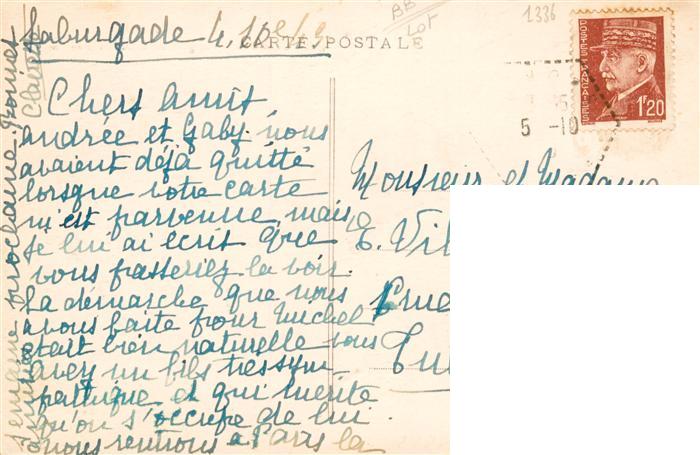 Laburgade 4.10
CARTE POSTALE
BB
Lot
1336
POSTES FRANÇAISES
1F20
5 -10
Chers amis
andrée et Gaby nous
avaient déjà quitté
lorsque votre carte
m'est parvenue mais
je lui ai écrit que
vous passeriez la voir.
La démarche que nous
avons faite pour Michel
était bien naturelle vous
avez un fils tres sym-
pathique et qui mérite
qu'on s'occupe de lui.
nous rentrons à Paris la
semaine prochaine
Monsieur et Madame